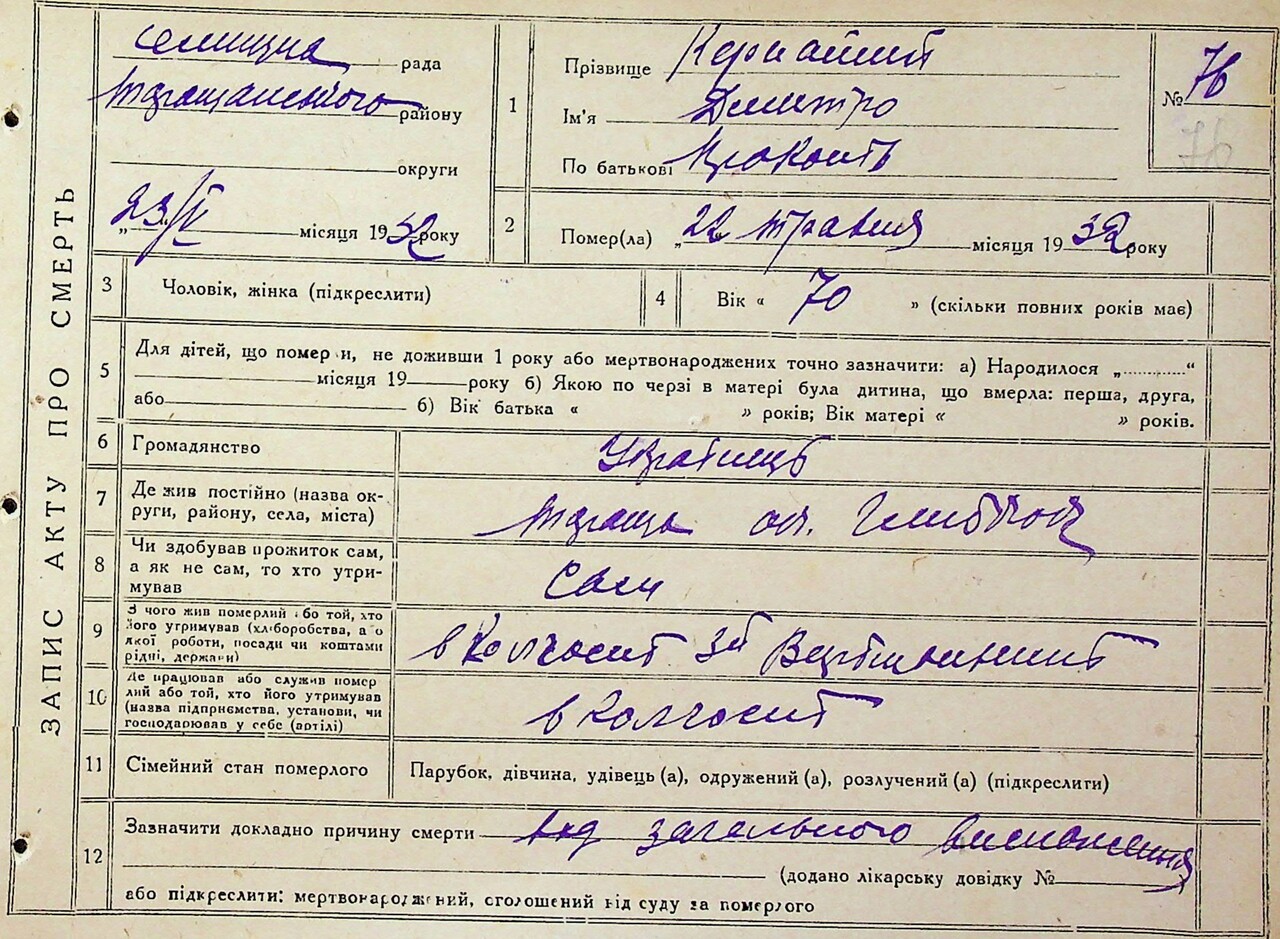 ЗАПИС АКТУ ПРО СМЕРТЬ
селищна рада
району
округи
„23/V місяця 1932 року
1
Прізвище
Ім'я Дмитро
По батькові
№ 76
76
2
Помер(ла) „22 травня місяця 1932 року
3
Чоловік, жінка (підкреслити)
4
Вік « 70 » (скільки повних років має)
5
Для дітей, що помер и, не доживши 1 року або мертвонароджених точно зазначити: а) Народилося „............“
місяця 19 року б) Якою по черзі в матері була дитина, що вмерла: перша, друга,
або б) Вік батька « » років; Вік матері « » років.
6
Громадянство
Українець
7
Де жив постійно (назва ок-
руги, району, села, міста)
8
Чи здобував прожиток сам,
а як не сам, то хто утри-
мував
Сам
9
З чого жив померлий або той, хто
його утримував (хліборобства, а о
якої роботи, посади чи коштами
рідні, держави)
в колгоспі
10
Де працював або служив помер
лий або той, хто його утримував
(назва підприємства, установи, чи
господарював у себе (артілі)
в колгоспі
11
Сімейний стан померлого
Парубок, дівчина, удівець (а), одружений (а), розлучений (а) (підкреслити)
12
Зазначити докладно причину смерти від загального виснаження
(додано лікарську довідку №
або підкреслити: мертвонароджений, оголошений від суду за померлого